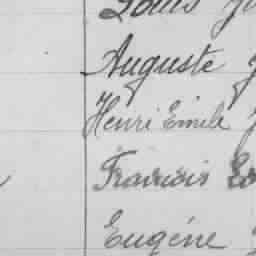 Louis
Auguste
Henri Emile
Francois
Eugéne